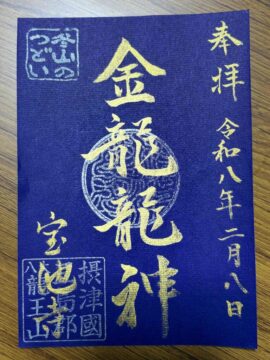 奉拝 令和八年二月八日
金龍龍神
宝池寺
冬山の
つどい
摂津國
八龍王山